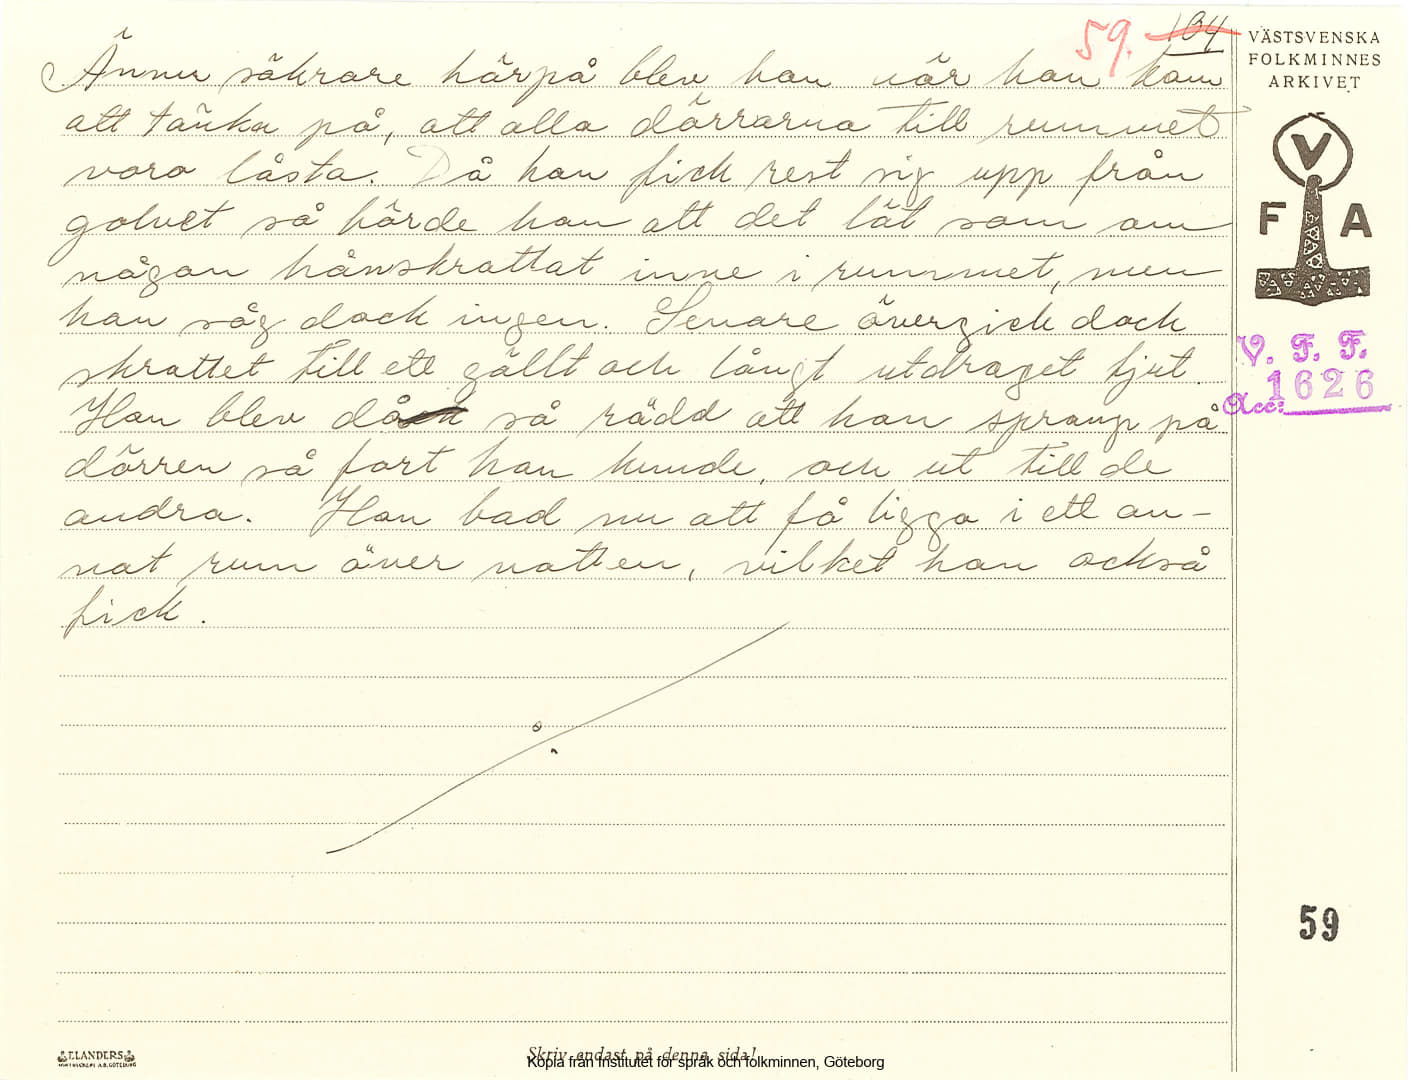 59. 134
VÄSTSVENSKA
FOLKMINNES
ARKIVET
V
F A
V. F. F.
Acc: 1626
Ännu säkrare härpå blev han när han kom
att tänka på, att alla dörrarna till rummet
voro låsta. Då han fick rest sig upp från
golvet så hörde han att det lät som om
någon hånskrattat inne i rummet, men
han såg dock ingen. Senare övergick dock
skrattet till ett gällt och långt utdraget tjut.
Han blev då så rädd att han sprang på
dörren så fort han kunde, och ut till de
andra. Han bad nu att få ligga i ett an-
nat rum över natten, vilket han också
fick.
59
ELANDERS
Skriv endast på denna sida!
Kopia från Institutet för språk och folkminnen, Göteborg